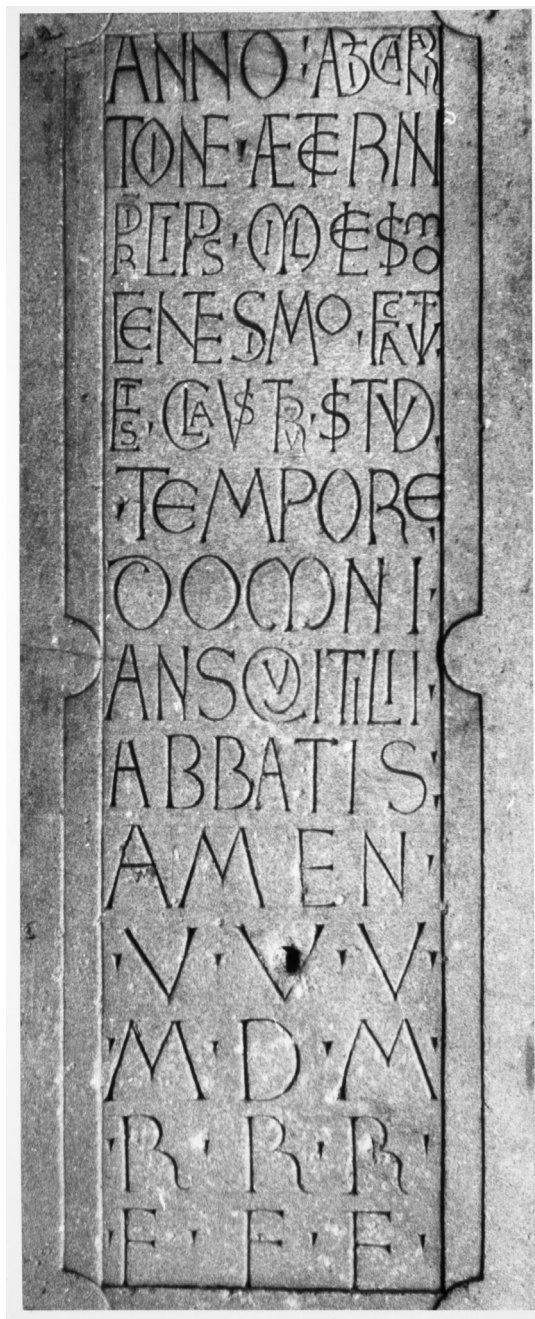 ANNO : AB INCARNA
TIONE · ÆTERNI
PRINCIPIS · MILESIMO
CENTESIMO · FACTV
EST · CLAVSTRV · ISTVD ·
· TEMPORE ·
DOMNI ·
ANSQVITILII ·
ABBATIS :
AMEN ·
· V · V · V ·
· M · D · M ·
· R · R · R ·
· F · F · F ·